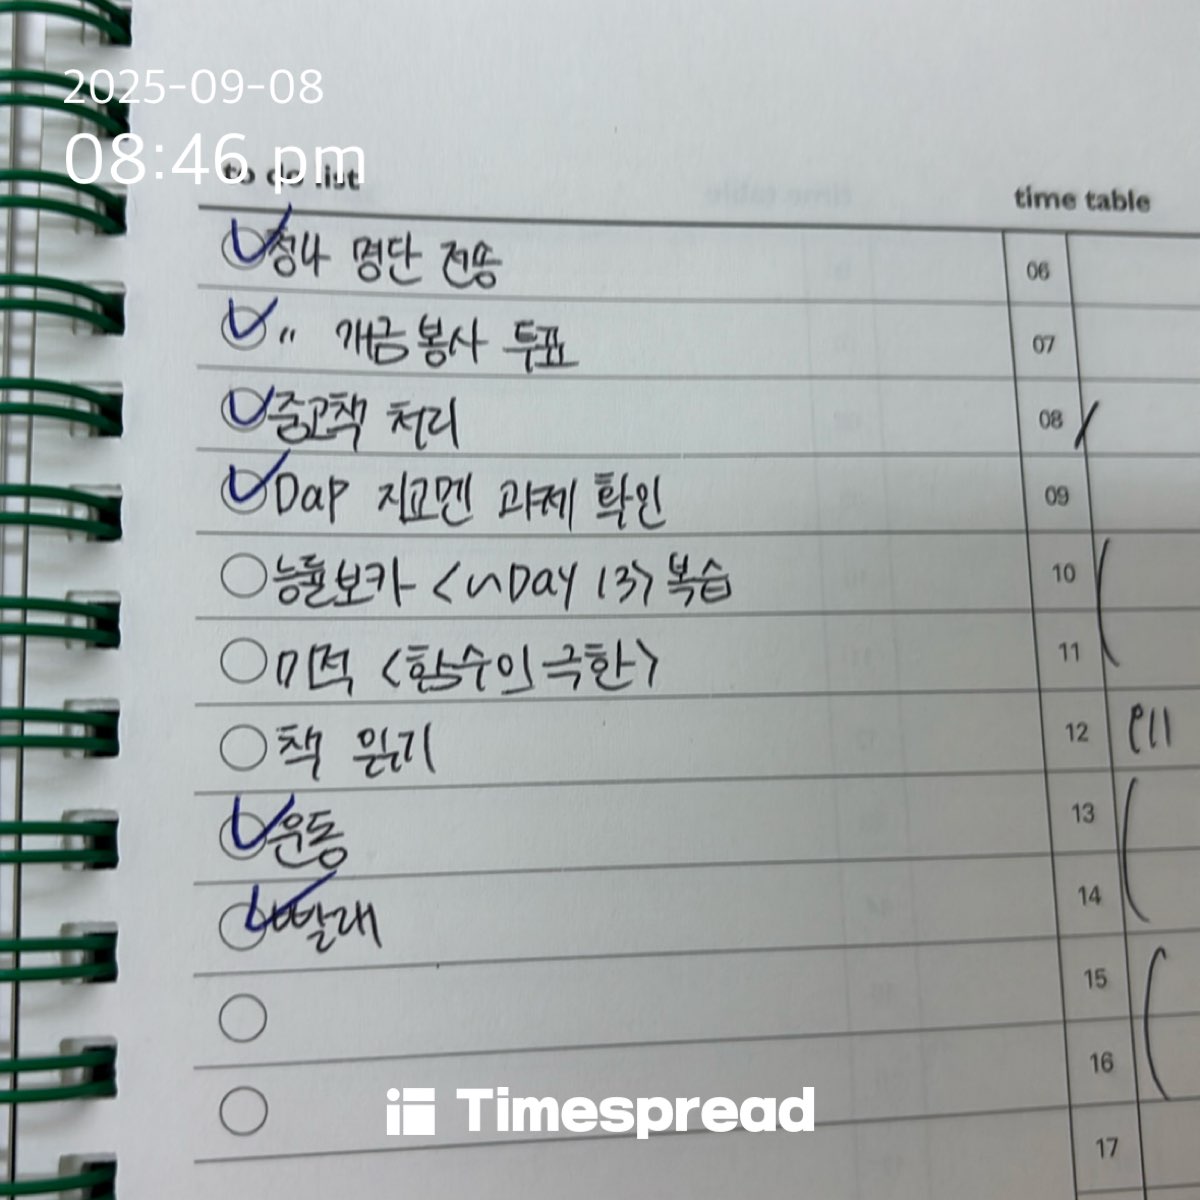 2025-09-08
08:46 pm
to do list
time table
청나 명단 전송
〃 개금봉사 투표
중고책 처리
Dap 지교멘 과제 확인
능률보카 <~DAY 13> 복습
미적 <함수의 극한>
책 읽기
운동
빨래
06
07
08
09
10
11
12
13
14
15
16
17
Timespread